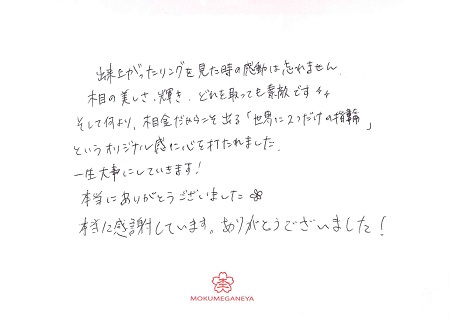 出来上がったリングを見た時の感動は忘れません。
木目の美しさ、輝き、どれを取っても素敵です
そして何より、木目金だからこそ出る「世界に2つだけの指輪」
というオリジナル感に心を打たれました。
一生大事にしていきます!
本当にありがとうございました
本当に感謝しています。ありがとうございました!
MOKUMEGANEYA